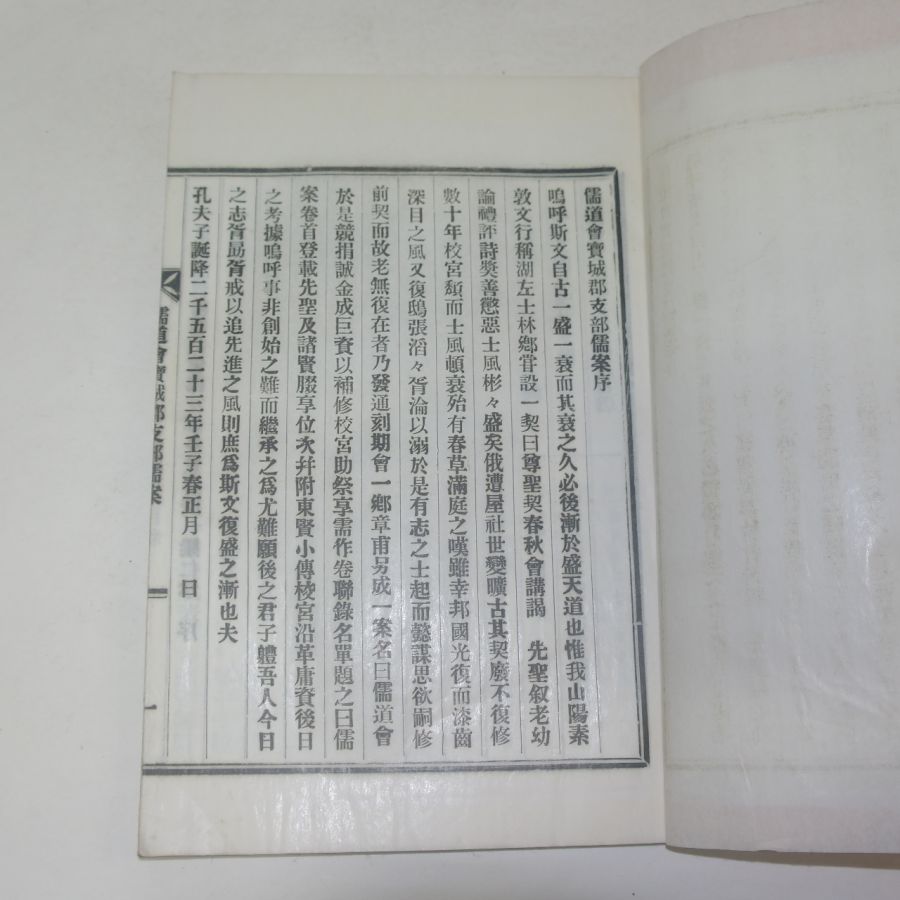 儒道會寶城郡支部儒案序
嗚呼斯文自古一盛一衰而其衰之久必後漸於盛天道也惟我山陽素
敦文行稱湖左士林鄕甞設一契曰尊聖契春秋會講謁　先聖叙老幼
論禮評詩獎善懲惡士風彬々盛矣俄遭屋社世變曠古其契廢不復修
數十年校宮頹而士風頓衰殆有春草滿庭之嘆雖幸邦國光復而漆齒
深目之風又復鴟張滔々胥淪以溺於是有志之士起而懿謀思欲嗣修
前契而故老無復在者乃發通刻期會一鄕章甫另成一案名曰儒道會
於是競捐誠金成巨資以補修校宮助祭享需作卷聯錄名單題之曰儒
案卷首登載先聖及諸賢腏享位次幷附東賢小傳校宮沿革庸資後日
之考據嗚呼事非創始之難而繼承之爲尤難願後之君子軆吾人今日
之志胥勗胥戒以追先進之風則庶爲斯文復盛之漸也夫
孔夫子誕降二千五百二十三年壬子春正月　日
儒道會寶城郡支部儒案
一